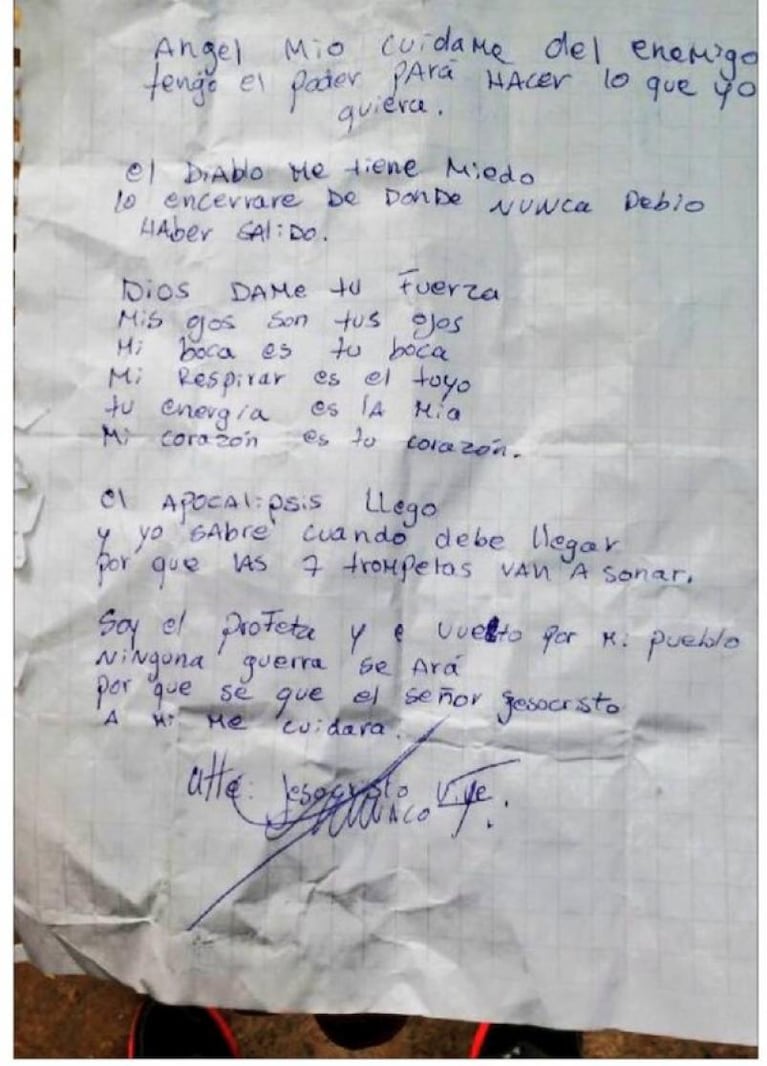 Angel Mio cuidame del enemigo
tengo el poder para hacer lo que yo
quiera.
el Diablo me tiene Miedo
lo encerrare De DonDe NUNca Debio
HAber SAliDO.
Dios DAMe tu Fuerza
Mis ojos son tus ojos
Mi boca es tu boca
Mi Respirar es el tuyo
tu energía es lA Mia
Mi corazón es tu corazón.
el APOCAlipsis Llego
y yo SAbré cuando debe llegar
por que lAS 7 trompetas VAN A sonar.
Soy el profeta y e vuelto por Mi pueblo
NiNguna guerra se Ará
por que sé que el señor Jesocristo
A Mi Me cuidara.
Atte: Jesocristo Vive.